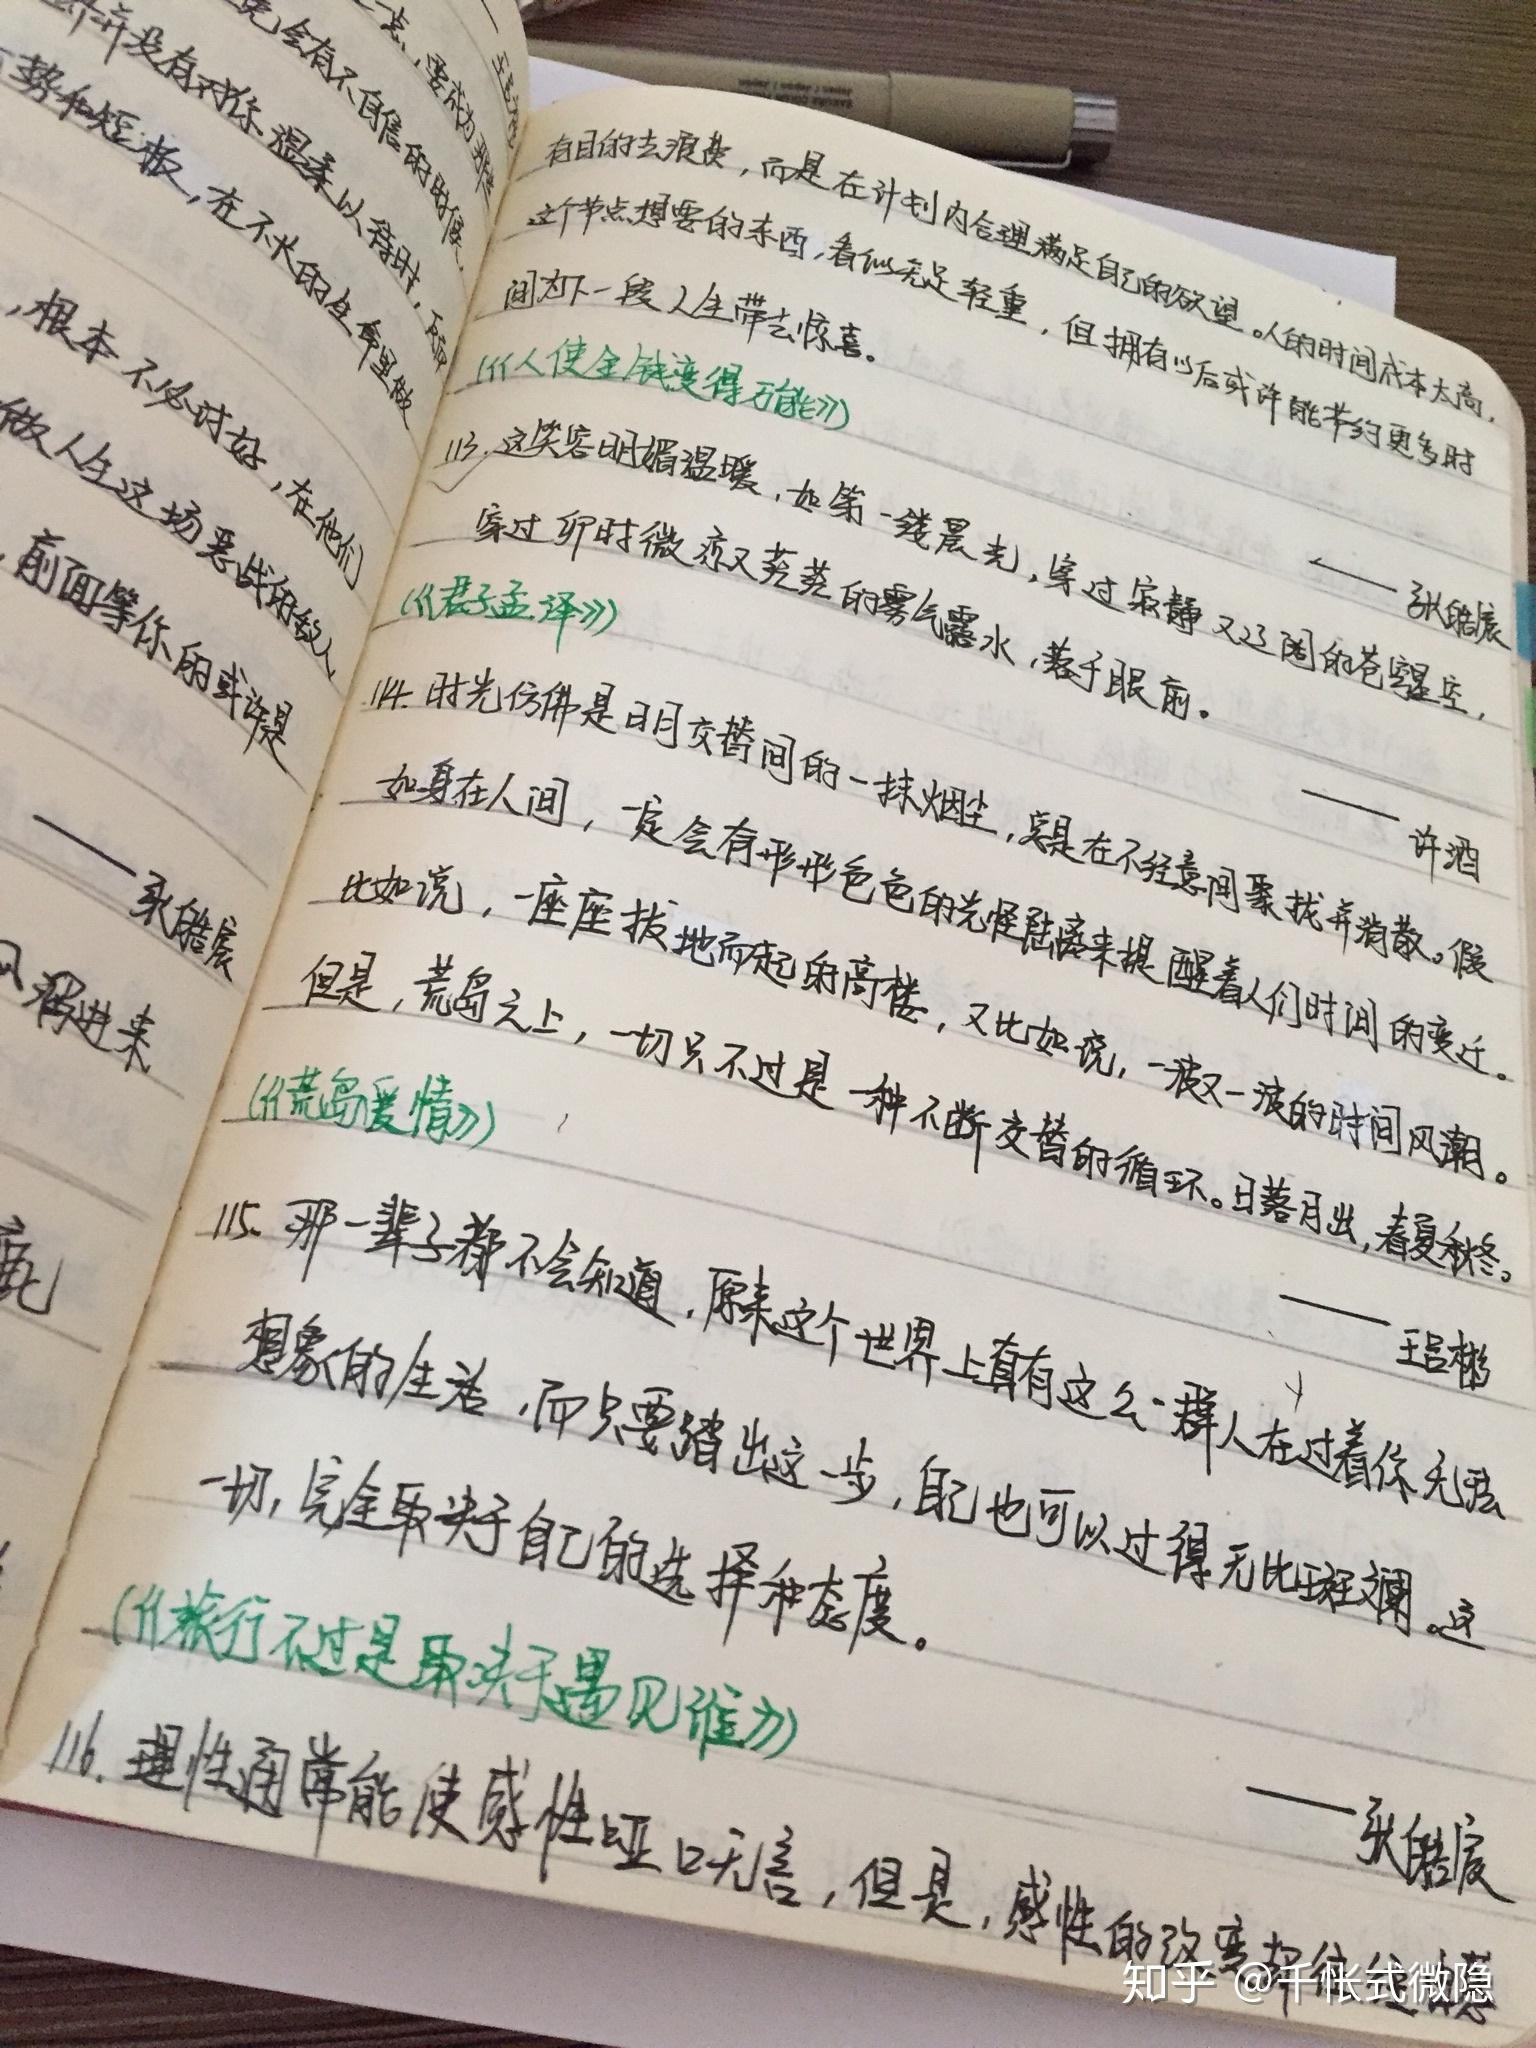 有目的去浪费，而是在计划内合理满足自己的欲望。人的时间成本太高，
这个节点想要的东西，看似无足轻重，但拥有以后或许能节约更多时
间为下一段人生带去惊喜。
(《人使金钱变得万能》)
—— 张皓宸
113. 这笑容明媚温暖，如第一缕晨光，穿过寂静又辽阔的苍穹星空，
穿过卯时微凉又茫茫的雾气露水，落于眼前。
(《君子孟泽》)
—— 许酒
114. 时光仿佛是日月交替间的一抹烟尘，总是在不经意间聚拢并消散。假
如身在人间，一定会有形形色色的光怪陆离来提醒着人们时间的变迁。
比如说，一座座拔地而起的高楼，又比如说，一波又一波的时间风潮。
但是，荒岛之上，一切只不过是一种不断交替的循环。日落月出，春夏秋冬。
(《荒岛爱情》)
—— 王吕彬
115. 那一辈子都不会知道，原来这个世界上真有这么一群人在过着你无法
想象的生活，而只要踏出这一步，自己也可以过得无比斑斓。这
一切，完全取决于自己的选择和态度。
(《旅行不过是取决于遇见谁》)
—— 张皓宸
116. 理性通常能使感性哑口无言，但是，感性的改变却往往
知乎 @千帐式微隐
一点，要成为那些
免会有不自信的时候，
并没有对你温柔以待时，
势和短板，在不长的生命里做
，根本不必讨好，在他们
做人生这场恶战的敌人
，前面等你的或许是
—— 张皓宸
风漏进来